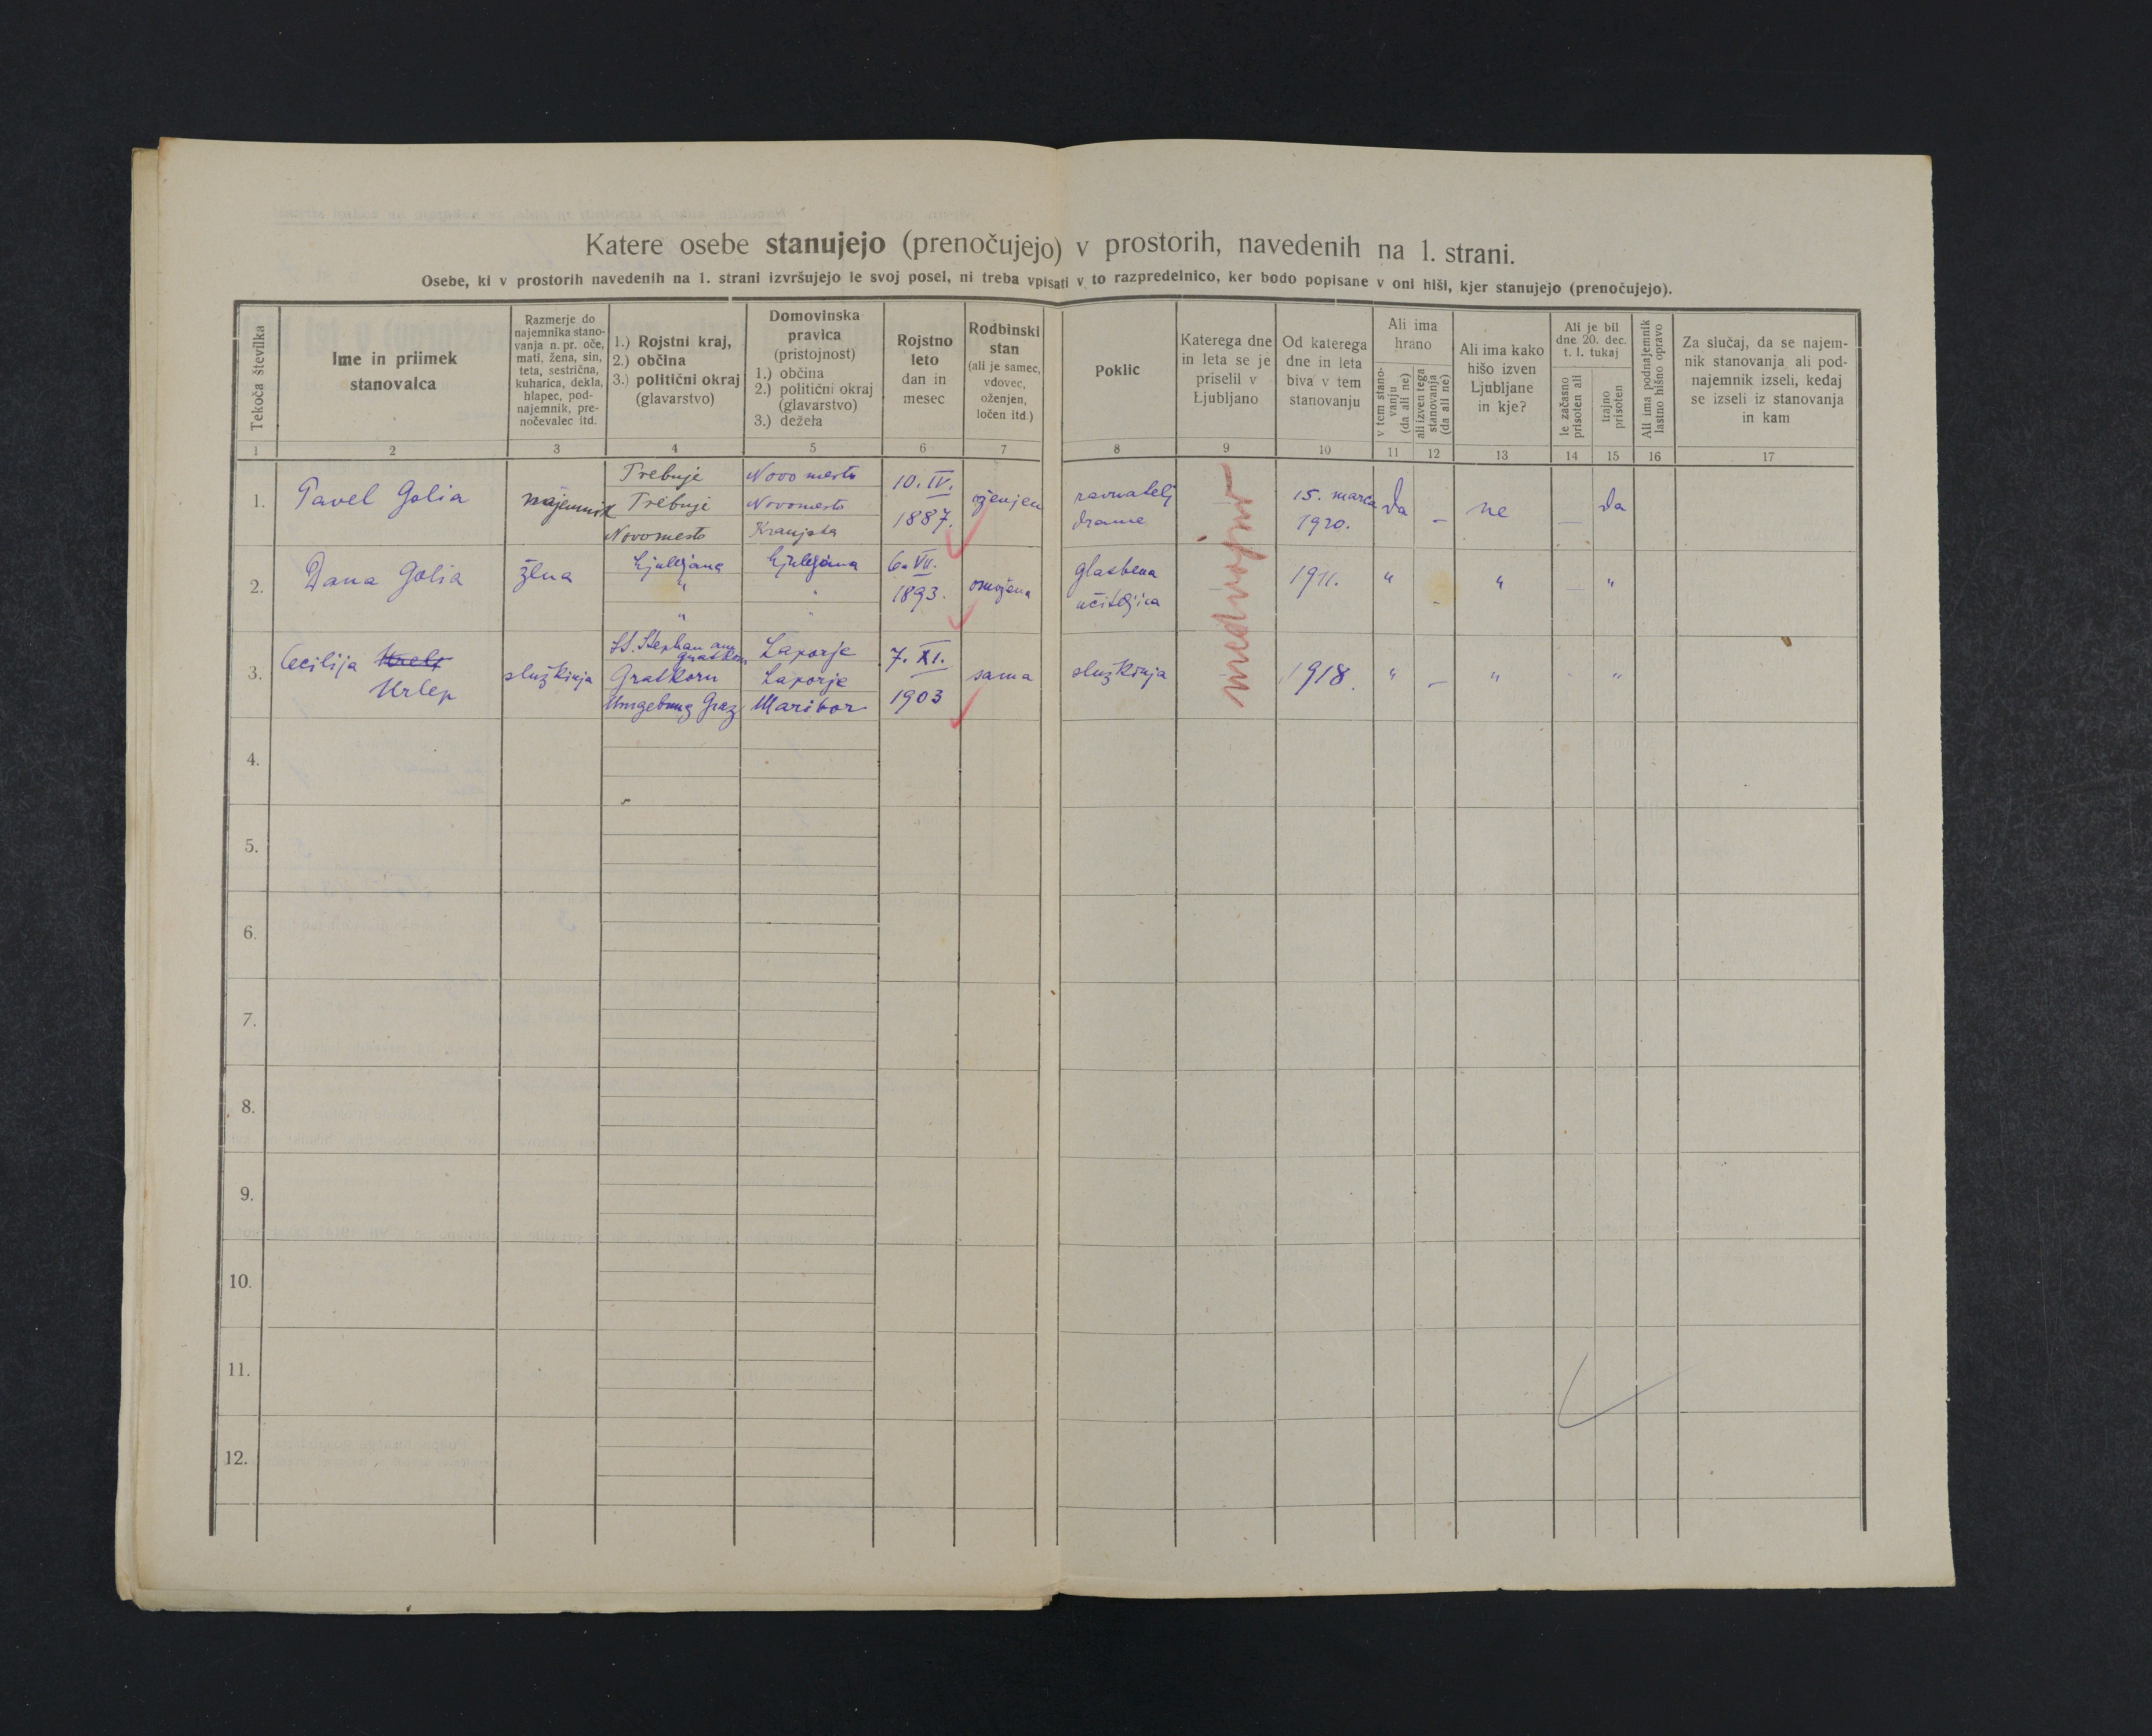 Katere osebe stanujejo (prenočujejo) v prostorih, navedenih na 1. strani.
Osebe, ki v prostorih navedenih na 1. strani izvršujejo le svoj posel, ni treba vpisati v to razpredelnico, ker bodo popisane v oni hiši, kjer stanujejo (prenočujejo).
Tekoča številka
Ime in priimek
stanovalca
Razmerje do
najemnika stano-
vanja n. pr. oče,
mati, žena, sin,
teta, sestrična,
kuharica, dekla,
hlapec, pod-
najemnik, pre-
nočevalec itd.
1.) Rojstni kraj,
2.) občina
3.) politični okraj
(glavarstvo)
Domovinska
pravica
(pristojnost)
1.) občina
2.) politični okraj
(glavarstvo)
3.) dežela
Rojstno
leto
dan in
mesec
Rodbinski
stan
(ali je samec,
vdovec,
oženjen,
ločen itd.)
Poklic
Katerega dne
in leta se je
priselil v
Ljubljano
Od katerega
dne in leta
biva v tem
stanovanju
Ali ima
hrano
v tem stano-
vanju
(da ali ne)
ali izven tega
stanovanja
(da ali ne)
Ali ima kako
hišo izven
Ljubljane
in kje?
Ali je bil
dne 20. dec.
t. l. tukaj
le začasno
prisoten ali
trajno
prisoten
Ali ima podnajemnik
lastno hišno opravo
Za slučaj, da se najem-
nik stanovanja ali pod-
najemnik izseli, kedaj
se izseli iz stanovanja
in kam
1 2 3 4 5 6 7 8 9 10 11 12 13 14 15 16 17
1.
Pavel Golia
najemnik
Trebnje
Trebnje
Novomesto
Novo mesto
Novomesto
Kranjska
10. IV.
1887.
oženjen
ravnatelj
drame
15. marca
1920.
da
–
ne
—
da
2.
Dana Golia
žena
Ljubljana
"
"
Ljubljana
"
"
6. VII.
1893.
omožena
glasbena
učiteljica
1911.
"
"
"
3.
Cecilija
Urlep
služkinja
St. Stephan am
Gratkorn
Gratkorn
Umgebung Graz
Laporje
Laporje
Maribor
7. XI.
1903
sama
služkinja
1918.
"
–
"
"
4.
5.
6.
7.
8.
9.
10.
11.
12.